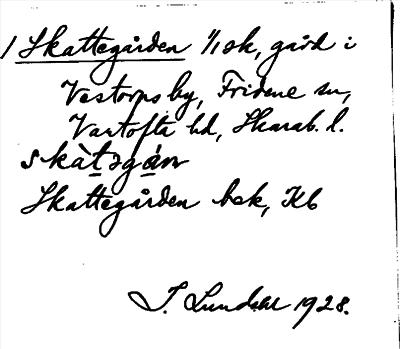 1 Skattegården 1/1 sk, gård i
Vestorps by, Fridene sn,
Vartofta hd, Skarab. l.
skàt̲əgá̲n
Skattegården bok, Kb
I. Lundahl 1928.